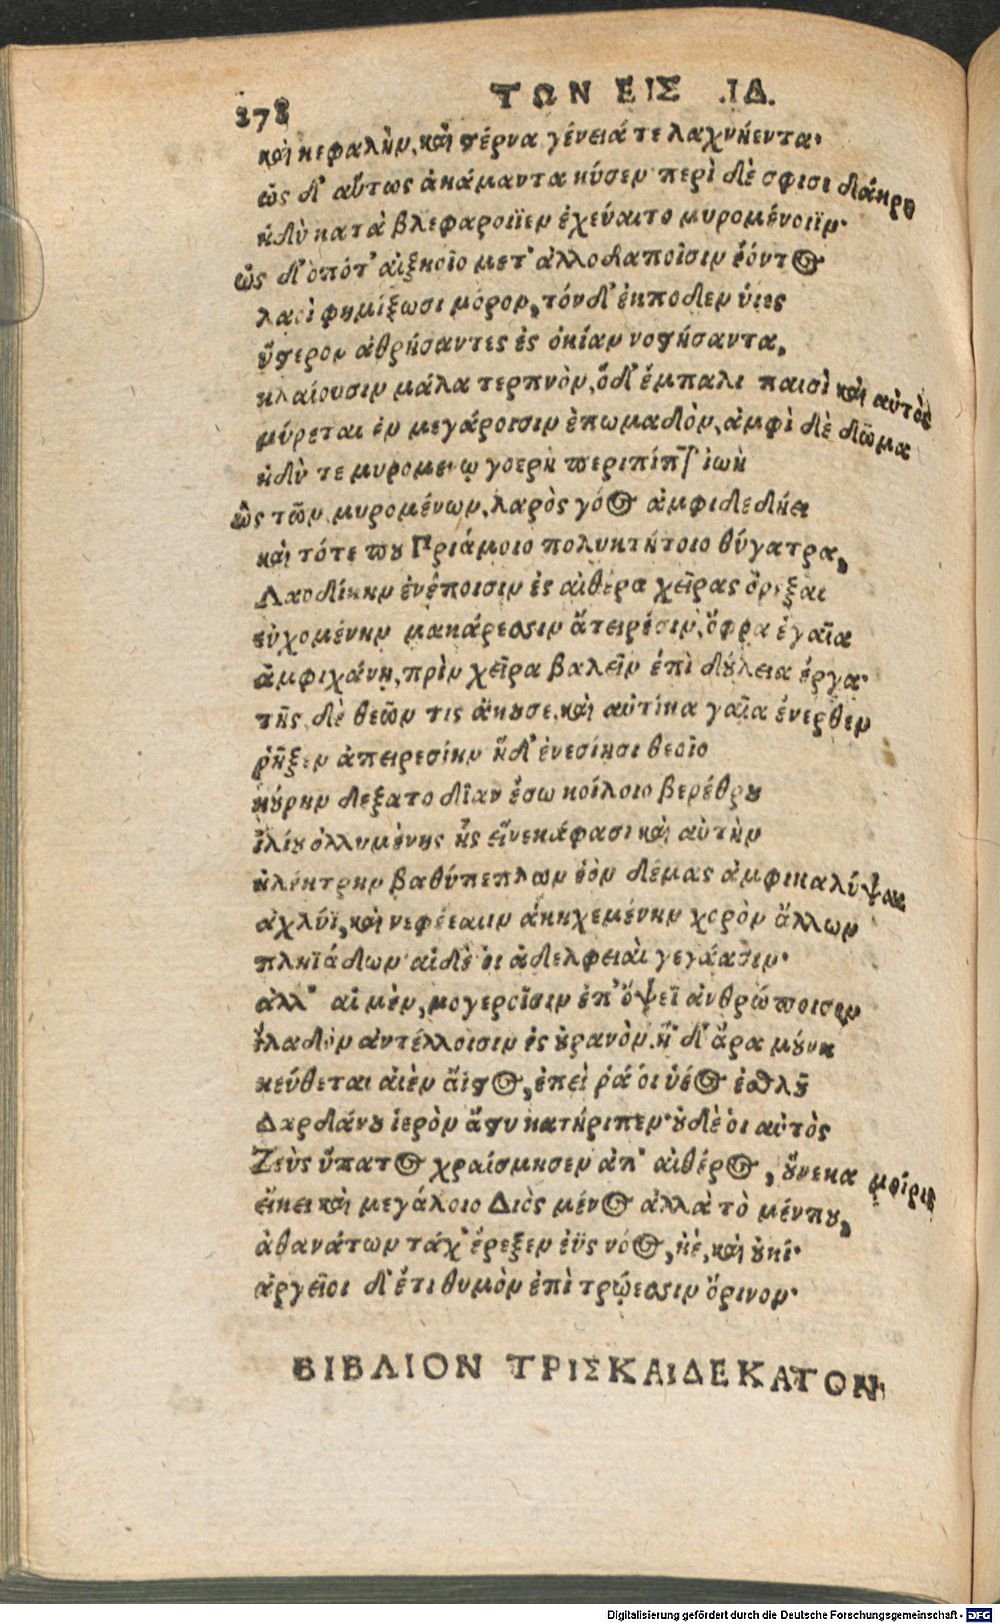 278
ΤΩΝ ΕΙΣ .ΙΔ.
καὶ κεφαλὴν, καὶ στέρνα γένειά τε λαχνήεντα·
ὣς δ' αὔτως ἀκάμαντα κύσεν περὶ δὲ σφισι δάκρυ
ἡδὺ κατὰ βλεφαροιϊεν ἐχεύαιτο μυρομένοιϊν·
ὣς δ' ὁπότ' αἰζηοῖο μετ' ἀλλοδαποῖσιν ἐόντος
λαοὶ φημίξωσι μόρον, τόν δ' ἔκποθεν ὑιες
ὕστερον ἀθρήσαντες ἐς ὀκίαν νοστήσαντα,
κλαίουσιν μάλα τερπνὸν, ὅδ' ἔμπαλι παισὶ καὶ αὐτὸς
μύρεται ἐν μεγάροισιν ἐπωμαδὸν, ἀμφὶ δὲ δῶμα
ἡδὺ τε μυρομενῳ γοερὴ περιπίπτετ' ἰωὴ
ὣς τῶν μυρομένων, λαρὸς γόος ἀμφιδεδήει
καὶ τότε που Πριάμοιο πολυκτήτοιο θύγατρα,
Λαοδίκην ἐνέποισιν ἐς αἰθέρα χεῖρας ὄρεξαι
εὐχομένην μακάρεσσιν ἀτειρέσιν, ὄφρα ἑγαῖα
ἀμφιχάνῃ, πρὶν χεῖρα βαλεῖν ἐπὶ δούλεια ἔργα·
τῆς δὲ θεῶν τις ἄκουσε, καὶ αὐτίκα γαῖα ἔνερθεν
ῥῆξεν ἀπειρεσίην ἥδ' ἐνεσίησι θεοῖο
κούρην δέξατο δῖαν ἔσω κοίλοιο βερέθρου
ἰλίου ὀλλυμένης ἧς εἵνεκάφασι καὶ αὐτὴν
ἠλέκτρην βαθύπεπλων ἑὸν δέμας ἀμφικαλύψαι
ἀχλύϊ, καὶ νεφέεσσιν ἀκηχεμένην χορὸν ἄλλων
πληϊάδων αἱδέ οι ἀδελφειαὶ γεγάασιν·
ἀλλ' αἱ μὲν, μογεροῖσιν ἐπ' ὄψεϊ ἀνθρώποισιν
ἰλαδὸν αντέλλοισιν ἐς οὐρανὸν, ἣ δ' ἄρα μούνη
κεύθεται αἰὲν ἄϊστος, ἐπεὶ ῥά οἱ υἱέος ἐσθλοῦ
Δαρδάνου ἱερὸν ἄστυ κατήριπεν· οὐδὲ οἱ αὐτὸς
Ζεὺς ὕπατος χραίσμησεν ἀπ' αἰθέρος, οὕνεκα μοίρῃς
εἴκει καὶ μεγάλοιο Διὸς μένος ἀλλὰ τὸ μένπου,
ἀθανάτων τάχ' ἔρεξεν ἐῢς νόος, ἠὲ, καὶ οὐκί·
ἀργεῖοι δ' ἔτι θυμὸν ἐπὶ τρώεσσιν ὄρινον·
ΒΙΒΛΙΟΝ ΤΡΙΣΚΑΙΔΕΚΑΤΟΝ
Digitalisierung gefördert durch die Deutsche Forschungsgemeinschaft - DFG